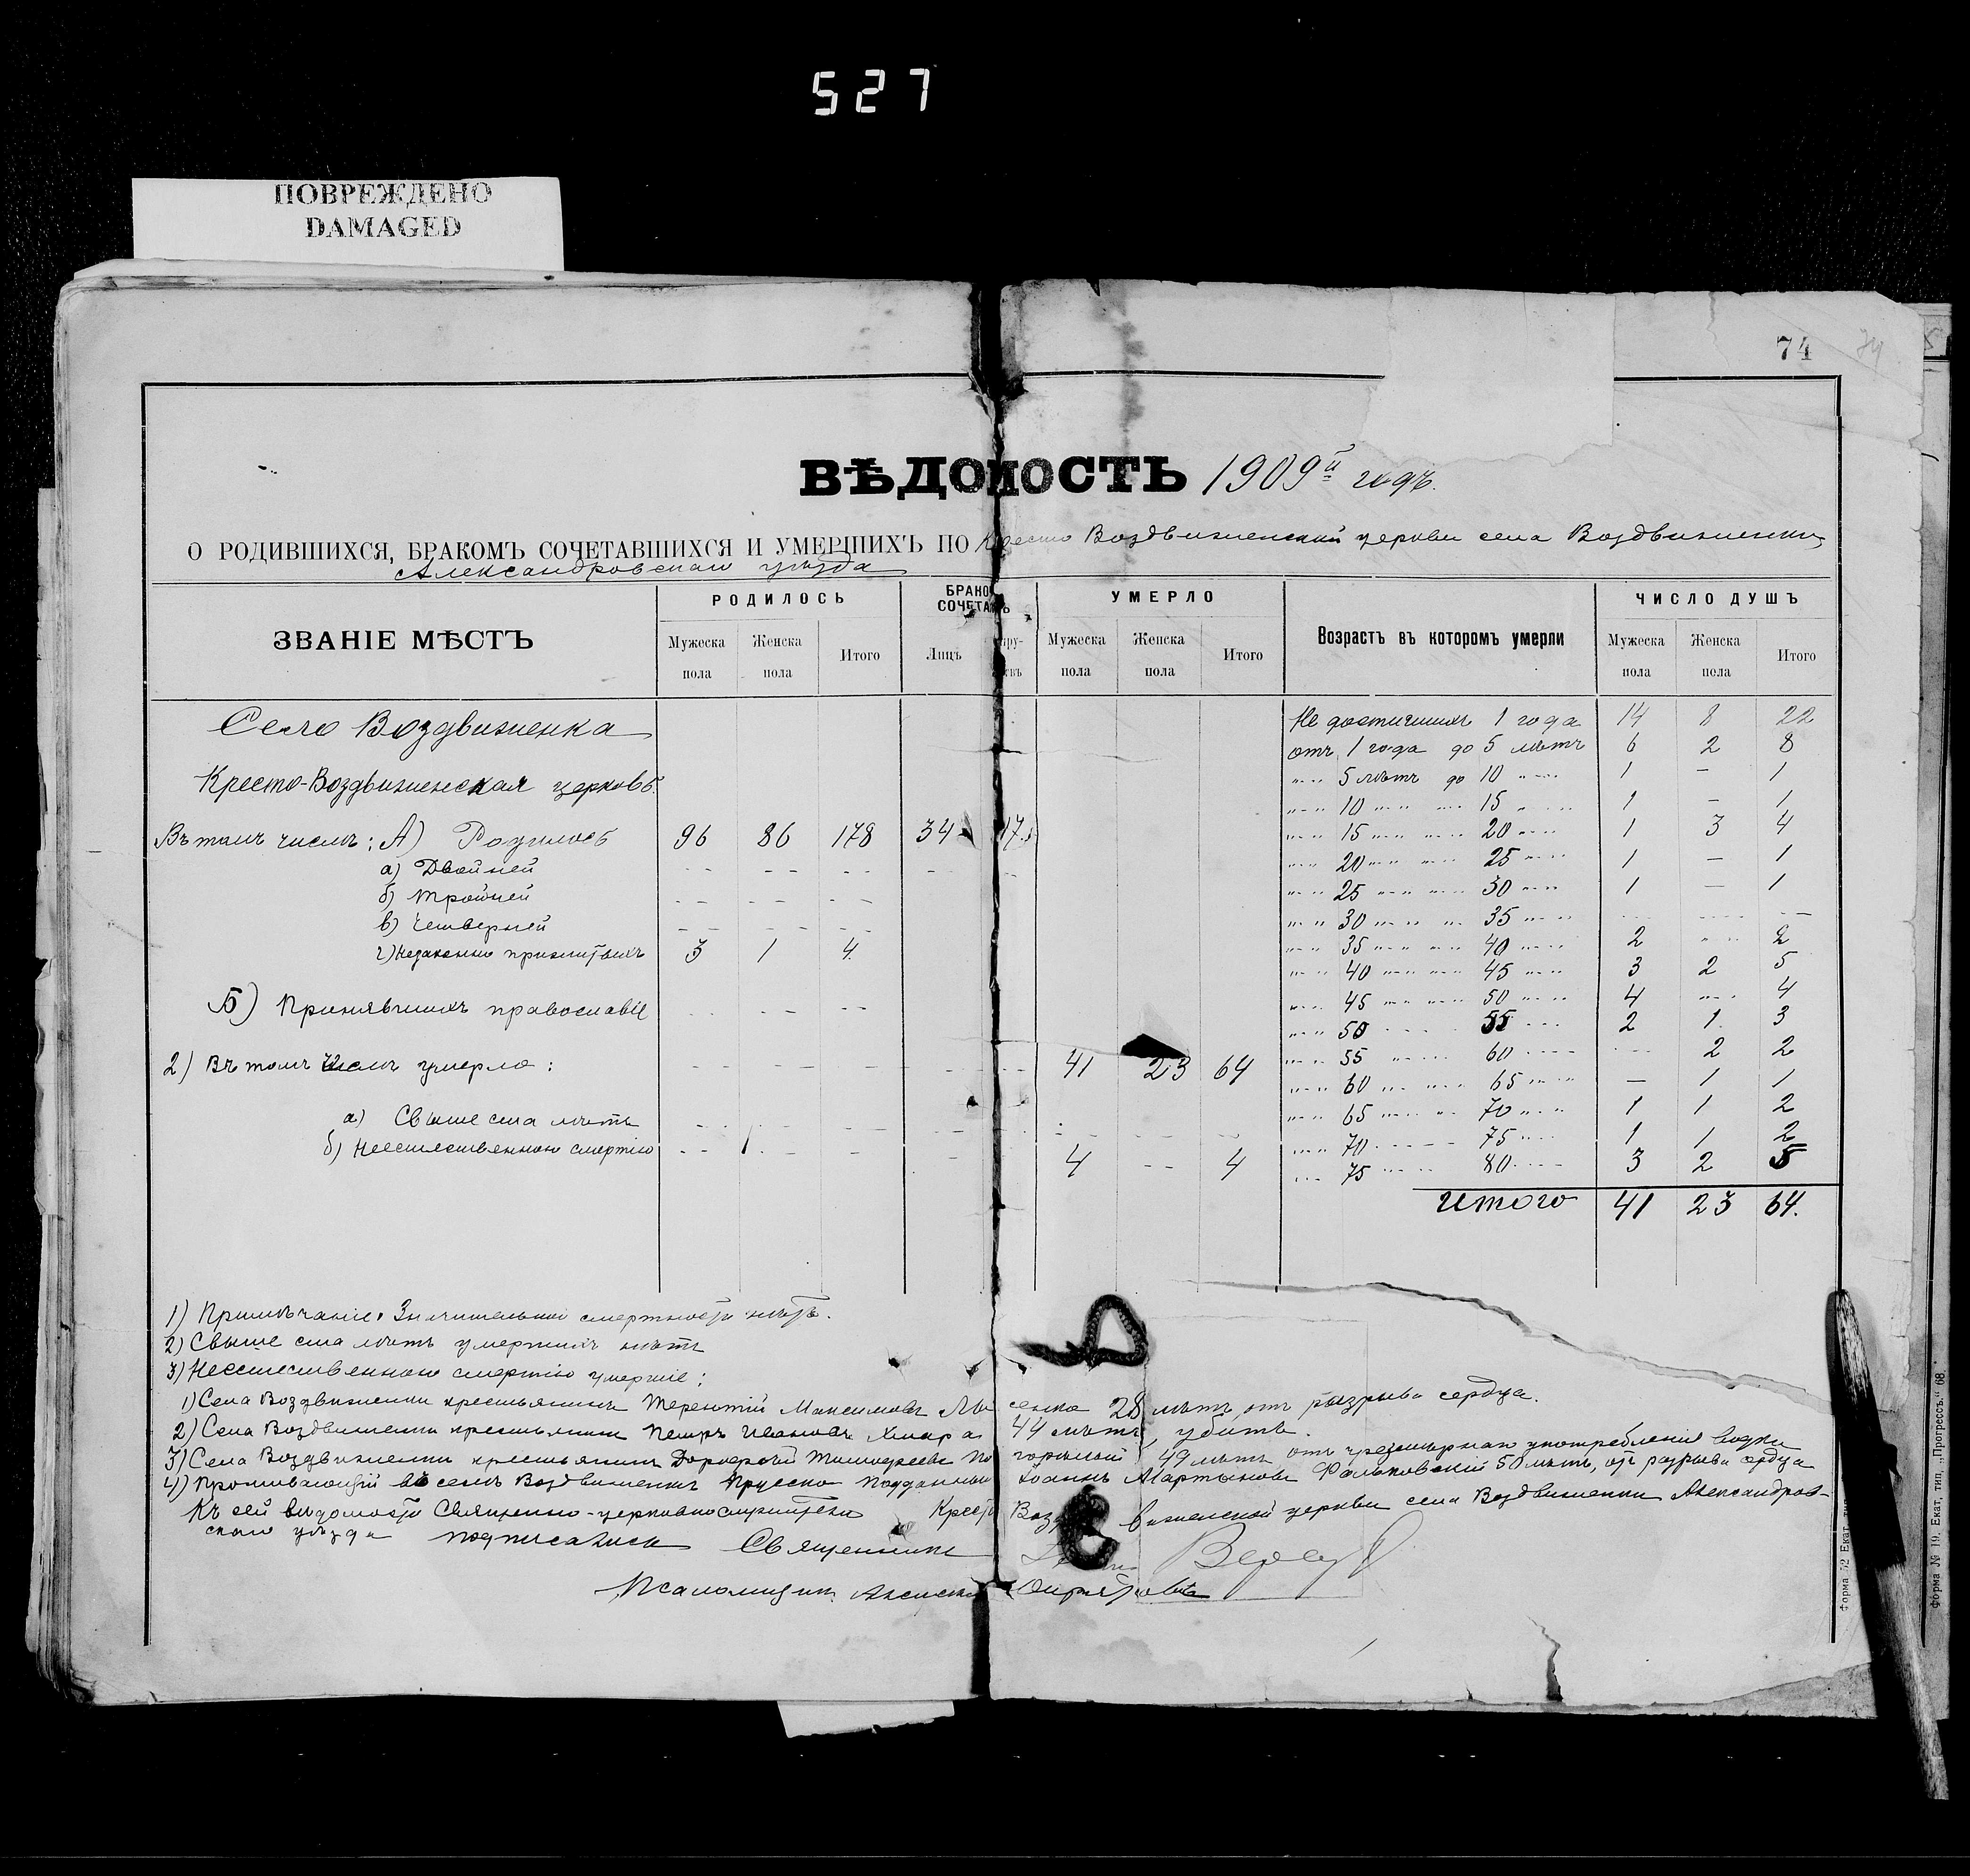 527
ПОВРЕЖДЕНО
DAMAGED
74
74
ВѢДОМОСТЬ 1909й годъ.
О РОДИВШИХСЯ, БРАКОМЪ СОЧЕТАВШИХСЯ И УМЕРШИХЪ ПО Кресто Воздвиженской церкви села Воздвиженки,
Александровскаго уѣзда
ЗВАНІЕ МѢСТЪ
РОДИЛОСЬ
Мужеска пола
Женска пола
Итого
БРАКО СОЧЕТА
Лицъ
УМЕРЛО
Мужеска пола
Женска пола
Итого
Возрастъ въ которомъ умерли
ЧИСЛО ДУШЪ
Мужеска пола
Женска пола
Итого
Село Воздвиженка
Кресто-Воздвиженская церковь.
Въ томъ числѣ: А) Родилось 96 86 178 34 17
а) Двойней - - - - - -
б) Тройней - - - - - -
в) Четверней - - - - - -
г) Незаконно прижитыхъ 3 1 4.
Б) Принявшихъ православіе - - - - - -
2) Въ томъ числѣ умерло: 41 23 64
а) Свыше ста лѣтъ
б) Неестественною смертію 4 - - 4
Не достигшихъ 1 года 14 8 22
отъ 1 года до 5 лѣтъ 6 2 8
" " 5 лѣтъ до 10 " " 1 - 1
" " 10 " " " " 15 " " 1 - 1
" " 15 " " " " 20 " " 1 3 4
" " 20 " " " " 25 " " 1 - 1
" " 25 " " " " 30 " " 1 - 1
" " 30 " " " " 35 " " - - -
" " 35 " " " " 40 " " 2 " " 2
" " 40 " " " " 45 " " 3 2 5
" " 45 " " " " 50 " " 4 " " 4
" " 50 " " 55 " " 2 1. 3
" " 55 " " 60 " " - 2 2
" " 60 " " " " 65 " " - 1 1
" " 65 " " " " 70 " " 1 1 2
" " 70 - - - 75 " " 1 1 2
" " 75 " " 80 " " 3 2 5
Итого 41 23 64.
1) Примѣчаніе: Значительной смертности нѣтъ.
2) Свыше ста лѣтъ умершихъ нѣтъ
3) Неестественною смертію умершіе:
1) Села Воздвиженки крестьянинъ Терентій Максимовъ сенко 28 лѣтъ, отъ разрыва сердца.
2) Села Воздвиженки крестьянинъ Петръ Ивановъ 44 лѣтъ, убитъ.
3) Села Воздвиженки крестьянинъ Дорофей Тимофеевъ По горѣлый 49 лѣтъ, отъ чрезмѣрнаго употребленія водки
4) Проживающій въ селѣ Воздвиженкѣ Прусско подданный Іоаннъ Мартыновъ Фальковскій 50 лѣтъ, отъ разрыва сердца
Къ сей вѣдомости Священно-церковнослужители Кресто Воздвиженской церкви села Воздвиженки Александров-
скаго уѣзда подписались Священникъ
Псаломщикъ
Форма 52 Екат. тип.
Форма № 19. Екат. тип. „Прогрессъ.“ 68.